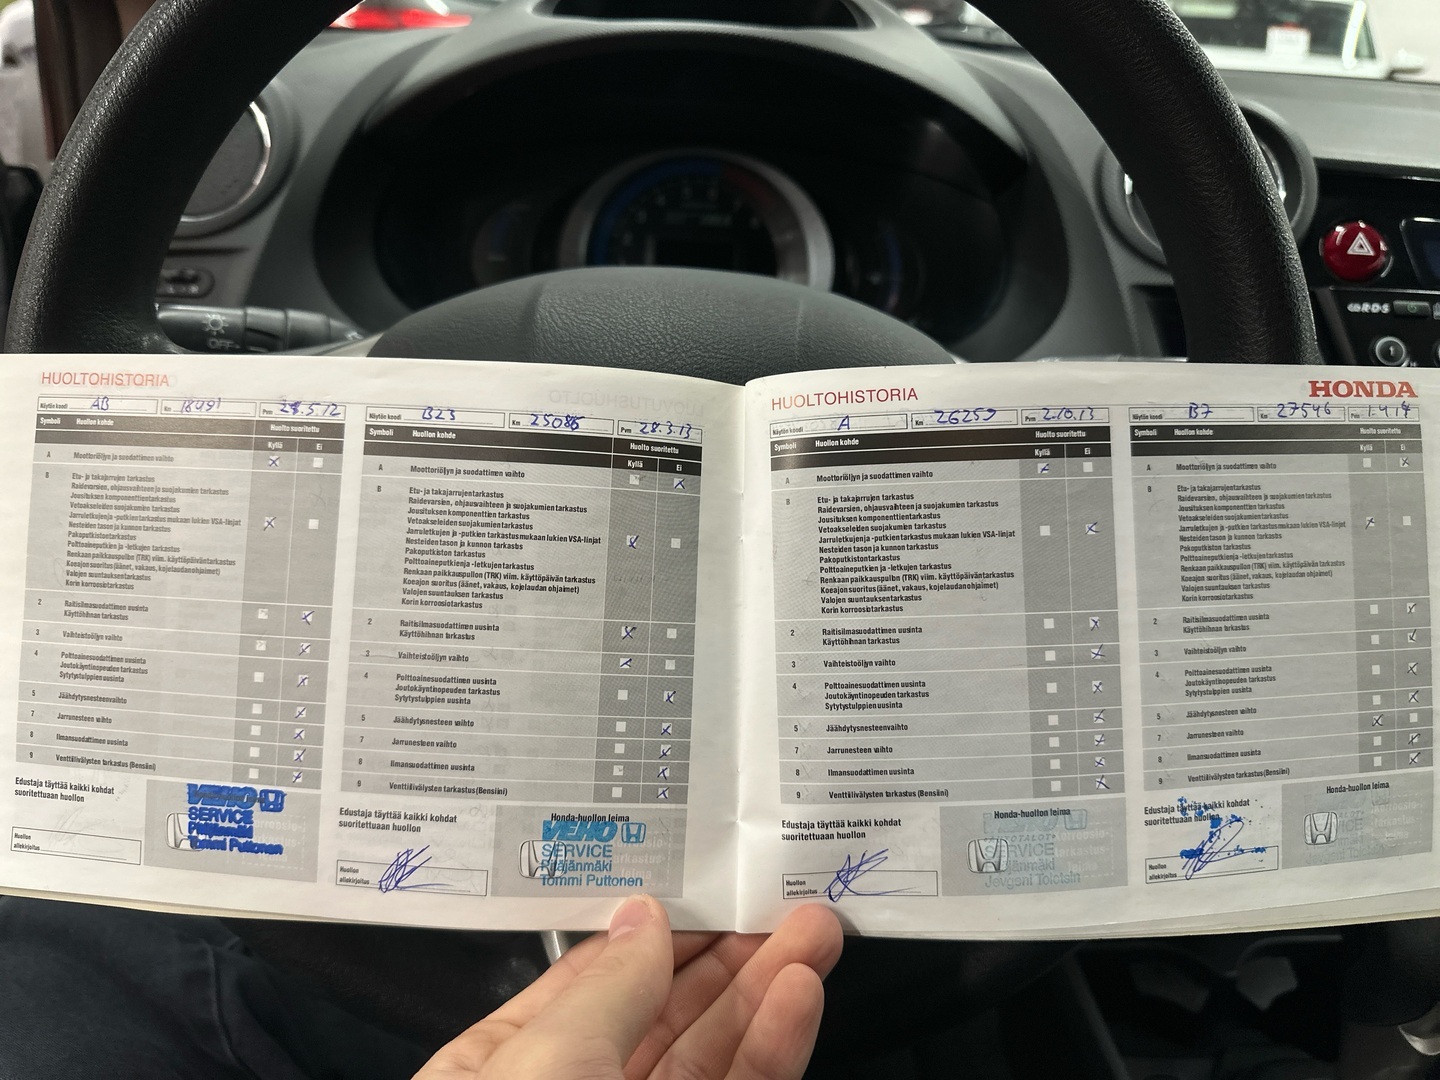 HUOLTOHISTORIA
Näytön koodi AB Km 18491 Pvm 28.5.12
Symboli Huollon kohde Huolto suoritettu
Kyllä Ei
A Moottoriöljyn ja suodattimen vaihto
B Etu- ja takajarrujen tarkastus
Raidevarsien, ohjausvaihteen ja suojakumien tarkastus
Jousituksen komponenttien tarkastus
Vetoakseleiden suojakumien tarkastus
Jarruletkujen ja -putkien tarkastus mukaan lukien VSA-linjat
Nesteiden tason ja kunnon tarkastus
Pakoputkiston tarkastus
Polttoaineputkien ja -letkujen tarkastus
Renkaan paikkauspullon (TRK) viim. käyttöpäivän tarkastus
Koeajon suoritus (äänet, vakaus, kojelaudan ohjaimet)
Valojen suuntauksen tarkastus
Korin korroosiotarkastus
2 Raitisilmasuodattimen uusinta
Käyttöhihnan tarkastus
3 Vaihteistoöljyn vaihto
4 Polttoainesuodattimen uusinta
Joutokäyntinopeuden tarkastus
Sytytystulppien uusinta
5 Jäähdytysnesteen vaihto
7 Jarrunesteen vaihto
8 Ilmansuodattimen uusinta
9 Venttiilivälysten tarkastus (Bensiini)
Edustaja täyttää kaikki kohdat
suoritettuaan huollon
Huollon
allekirjoitus
VEHO
SERVICE
Pitäjänmäki
Tommi Puttonen
Näytön koodi B23 Km 25086 Pvm 28.3.13
Symboli Huollon kohde Huolto suoritettu
Kyllä Ei
A Moottoriöljyn ja suodattimen vaihto
B Etu- ja takajarrujen tarkastus
Raidevarsien, ohjausvaihteen ja suojakumien tarkastus
Jousituksen komponenttien tarkastus
Vetoakseleiden suojakumien tarkastus
Jarruletkujen ja -putkien tarkastus mukaan lukien VSA-linjat
Nesteiden tason ja kunnon tarkastus
Pakoputkiston tarkastus
Polttoaineputkien ja -letkujen tarkastus
Renkaan paikkauspullon (TRK) viim. käyttöpäivän tarkastus
Koeajon suoritus (äänet, vakaus, kojelaudan ohjaimet)
Valojen suuntauksen tarkastus
Korin korroosiotarkastus
2 Raitisilmasuodattimen uusinta
Käyttöhihnan tarkastus
3 Vaihteistoöljyn vaihto
4 Polttoainesuodattimen uusinta
Joutokäyntinopeuden tarkastus
Sytytystulppien uusinta
5 Jäähdytysnesteen vaihto
7 Jarrunesteen vaihto
8 Ilmansuodattimen uusinta
9 Venttiilivälysten tarkastus (Bensiini)
Edustaja täyttää kaikki kohdat
suoritettuaan huollon
Huollon
allekirjoitus
Honda-huollon leima
VEHO
SERVICE
Pitäjänmäki
Tommi Puttonen
HUOLTOHISTORIA
Näytön koodi A Km 26259 Pvm 2.10.13
Symboli Huollon kohde Huolto suoritettu
Kyllä Ei
A Moottoriöljyn ja suodattimen vaihto
B Etu- ja takajarrujen tarkastus
Raidevarsien, ohjausvaihteen ja suojakumien tarkastus
Jousituksen komponenttien tarkastus
Vetoakseleiden suojakumien tarkastus
Jarruletkujen ja -putkien tarkastus mukaan lukien VSA-linjat
Nesteiden tason ja kunnon tarkastus
Pakoputkiston tarkastus
Polttoaineputkien ja -letkujen tarkastus
Renkaan paikkauspullon (TRK) viim. käyttöpäivän tarkastus
Koeajon suoritus (äänet, vakaus, kojelaudan ohjaimet)
Valojen suuntauksen tarkastus
Korin korroosiotarkastus
2 Raitisilmasuodattimen uusinta
Käyttöhihnan tarkastus
3 Vaihteistoöljyn vaihto
4 Polttoainesuodattimen uusinta
Joutokäyntinopeuden tarkastus
Sytytystulppien uusinta
5 Jäähdytysnesteen vaihto
7 Jarrunesteen vaihto
8 Ilmansuodattimen uusinta
9 Venttiilivälysten tarkastus (Bensiini)
Edustaja täyttää kaikki kohdat
suoritettuaan huollon
Huollon
allekirjoitus
Honda-huollon leima
SERVICE
Pitäjänmäki
Jevgeni
HONDA
Näytön koodi B7 Km 27546 Pvm 1.4.14
Symboli Huollon kohde Huolto suoritettu
Kyllä Ei
A Moottoriöljyn ja suodattimen vaihto
B Etu- ja takajarrujen tarkastus
Raidevarsien, ohjausvaihteen ja suojakumien tarkastus
Jousituksen komponenttien tarkastus
Vetoakseleiden suojakumien tarkastus
Jarruletkujen ja -putkien tarkastus mukaan lukien VSA-linjat
Nesteiden tason ja kunnon tarkastus
Pakoputkiston tarkastus
Polttoaineputkien ja -letkujen tarkastus
Renkaan paikkauspullon (TRK) viim. käyttöpäivän tarkastus
Koeajon suoritus (äänet, vakaus, kojelaudan ohjaimet)
Valojen suuntauksen tarkastus
Korin korroosiotarkastus
2 Raitisilmasuodattimen uusinta
Käyttöhihnan tarkastus
3 Vaihteistoöljyn vaihto
4 Polttoainesuodattimen uusinta
Joutokäyntinopeuden tarkastus
Sytytystulppien uusinta
5 Jäähdytysnesteen vaihto
7 Jarrunesteen vaihto
8 Ilmansuodattimen uusinta
9 Venttiilivälysten tarkastus (Bensiini)
Edustaja täyttää kaikki kohdat
suoritettuaan huollon
Huollon
allekirjoitus
Honda-huollon leima
OFF
1